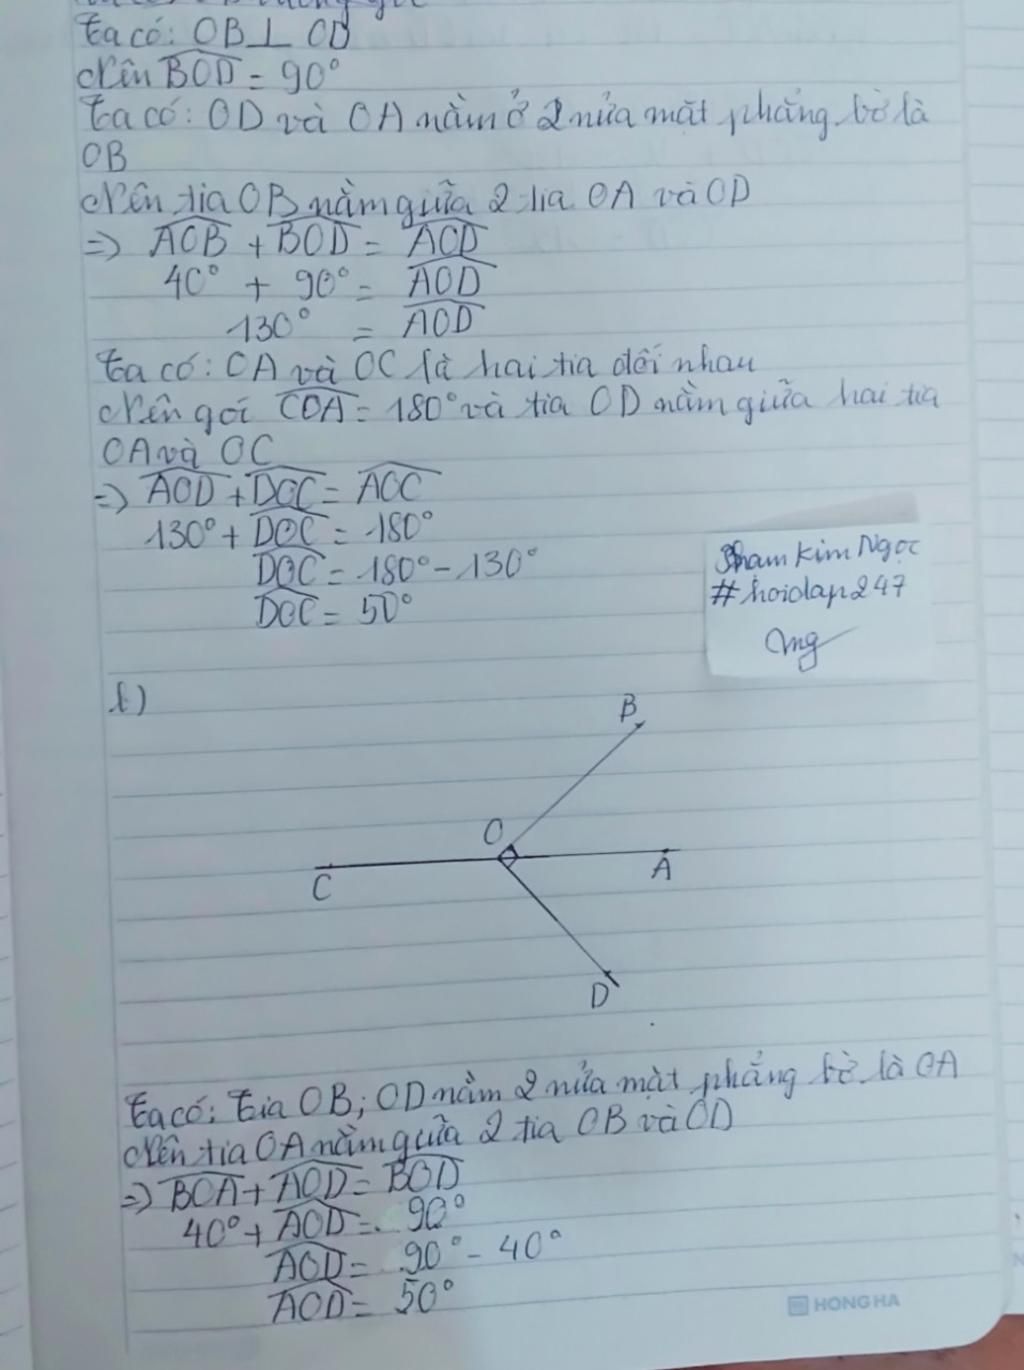 Ta có: OB ⊥ OD
Nên BOD = 90°
Ta có: OD và OA nằm ở 2 nửa mặt phẳng bờ là
OB
Nên tia OB nằm giữa 2 tia OA và OD
=> AOB + BOD = AOD
40° + 90° = AOD
130° = AOD
Ta có: OA và OC là hai tia đối nhau
Nên gói COA = 180° và tia OD nằm giữa hai tia
OA và OC
=> AOD + DOC = AOC
130° + DOC = 180°
DOC = 180° - 130°
DOC = 50°
Pham Kim Ngọc
#hoidap247
b)
B
O
C
A
D
Ta có: Tia OB; OD nằm 2 nửa mặt phẳng bờ là OA
Nên tia OA nằm giữa 2 tia OB và OD
=> BOA + AOD = BOD
40° + AOD = 90°
AOD = 90° - 40°
AOD = 50°
HONG HA